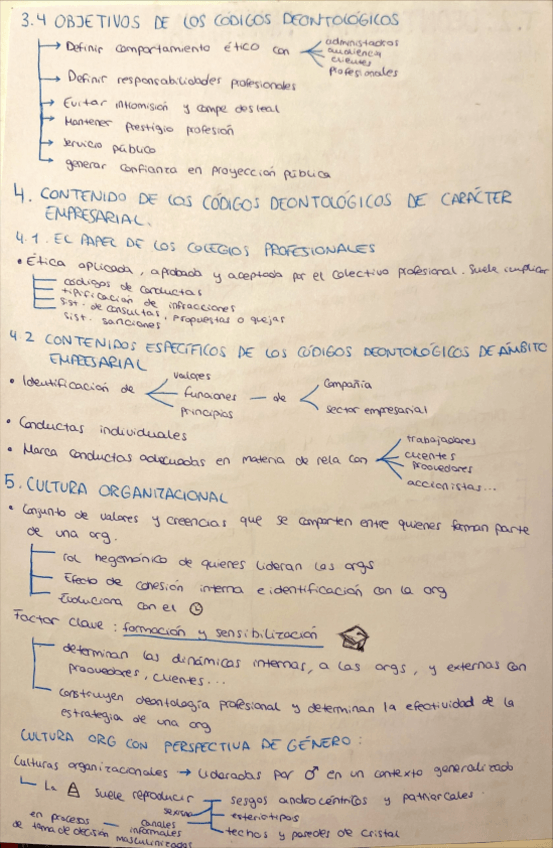 3.4 OBJETIVOS DE LOS CÓDIGOS DEONTOLÓGICOS
→ Definir comportamiento ético con
administrackos
audiencia
clientes
profesionales
→ Definir responsabilidades profesionales
→ Evitar intromisión y compe desleal
→ Mantener prestigio profesión
→ servicio público
→ generar confianza en proyección pública
4. CONTENIDO DE LOS CÓDIGOS DEONTOLÓGICOS DE CARÁCTER
EMPRESARIAL.
4.1. EL PAPEL DE LOS COLEGIOS PROFESIONALES
• Ética aplicada, aprobada y aceptada por el colectivo profesional. Suele implicar
códigos de conductas
tipificación de infracciones
sist. de consultas, propuestas o quejas
sist. sanciones
4.2 CONTENIDOS ESPECÍFICOS DE LOS CÓDIGOS DEONTOLÓGICOS DE ÁMBITO
EMPRESARIAL
• Identificación de
valores
funciones — de
principios
compañia
sector empresarial
• Conductas individuales
• Marca conductas adecuadas en materia de rela con
trabajadores
clientes
proovedores
accionistas...
5. CULTURA ORGANIZACIONAL
• Conjunto de valores y creencias que se comparten entre quienes forman parte
de una org.
rol hegemónico de quienes lideran las orgs
Efecto de cohesión interna e identificación con la org
Evoluciona con el
Factor clave: formación y sensibilización
determinan las dinámicas internas, a las orgs, y externas con
proovedores, clientes...
construyen deontología profesional y determinan la efectividad de la
estrategia de una org
CULTURA ORG CON PERSPECTIVA DE GÉNERO:
Culturas organizacionales → lideradas por ♂ en un contexto generalizado
La suele reproducir
sesgos androcéntricos y patriarcales
estereotipos
techos y paredes de cristal
en procesos — canales
informales
de toma de decisión masculinizados